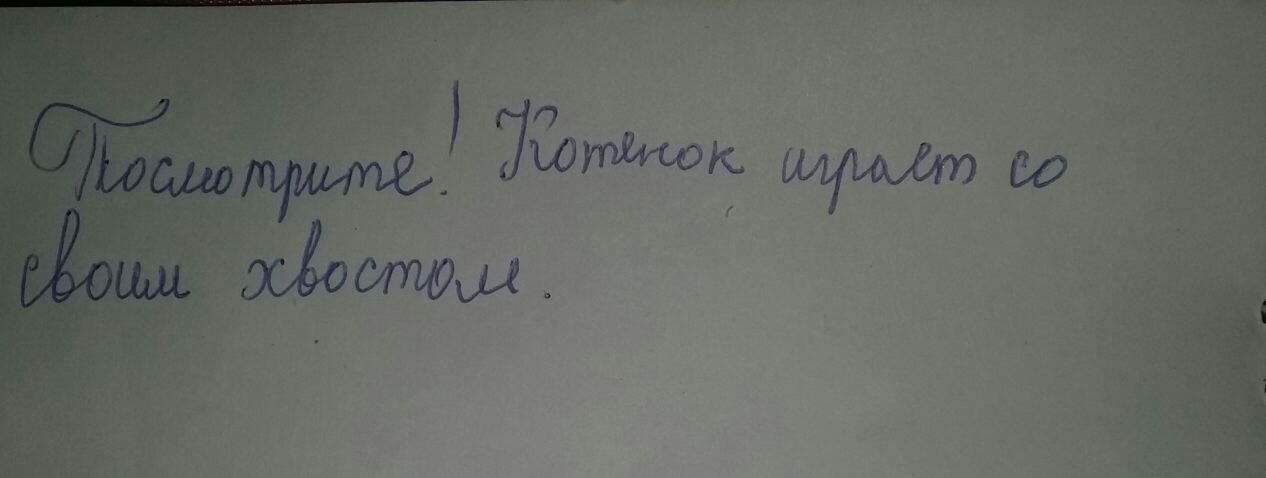 Посмотрите! Котенок играет со
своим хвостом.